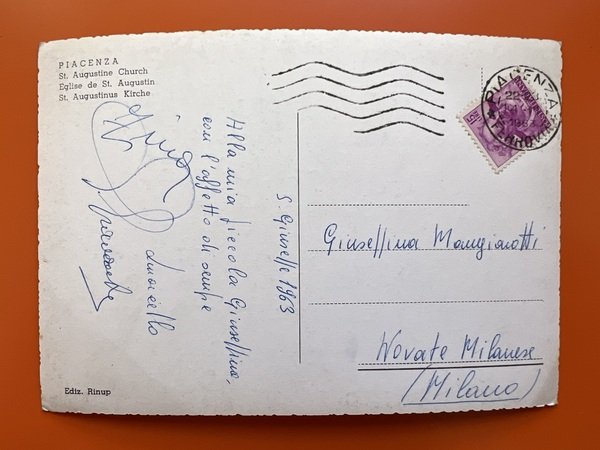 PIACENZA
St. Augustine Church
Eglise de St. Augustin
St. Augustinus Kirche
Alla mia piccola Giuseppina,
con l'affetto di sempre
S. Giuseppe 1963
Giuseppina Mangiarotti
Novate Milanese
(Milano)
PIACENZA
FERROVIA
Ediz. Rinup